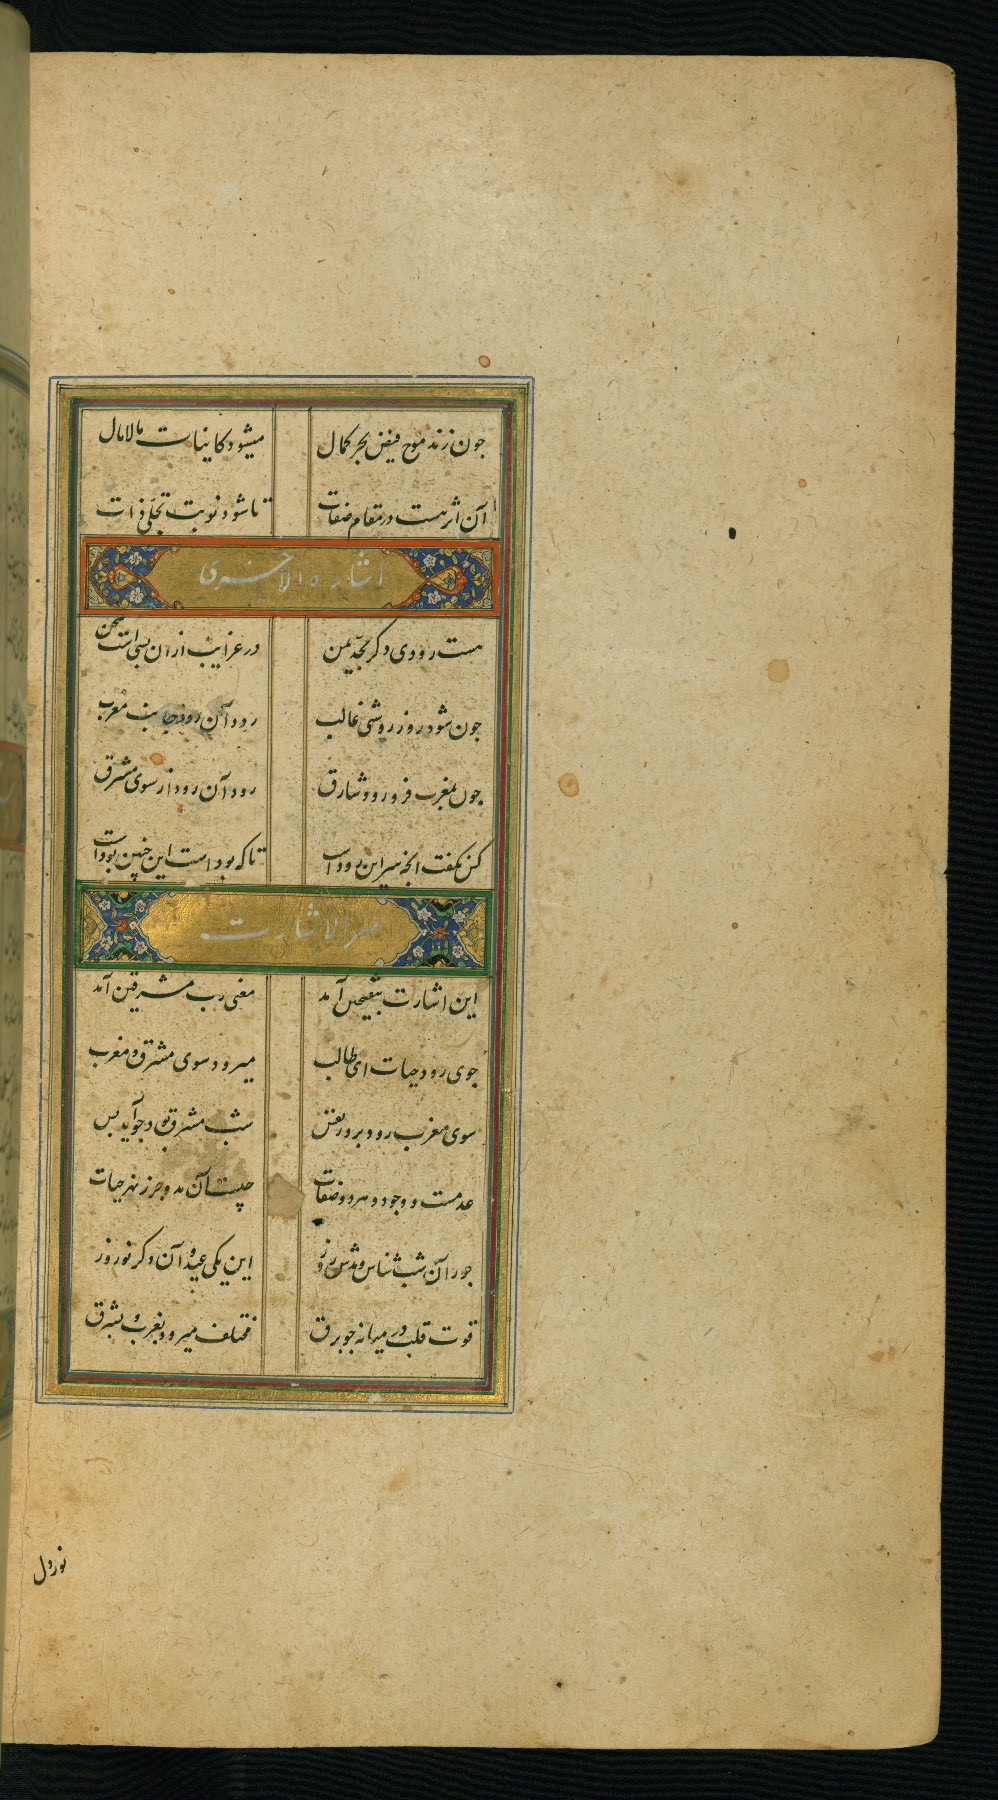 جون زند موج فیض بحر کمال میشود کاینات مالامال
آن اثر هست در مقام صفات تا شود نوبت تجلی ذات
اشارة الاخری
هست رودی دکر بحد یمن در غرایب ازان بسی است سخن
جون شود روز روشنی غالب رود آن رود جانب مغرب
جون بمغرب فرو رود شارق رود آن رود از سوی مشرق
کس نکفت این رود است تا که بود است این چنین بود است
سر الاشارت
این اشارت آمد معنی رب مشرقین آمد
جوی رود حیات ای طالب میرود سوی مشرق و مغرب
سوی مغرب رود بروز نفس شب مشرق بود جو آید پس
عدمست و وجود هر دو صفات چیست آن مد و جزر نهر حیات
آن شب شناس این یکی عید و آن دکر نوروز
قوت قلب در میانه جو برق مختلف میرود بغرب و بشرق
نور دل